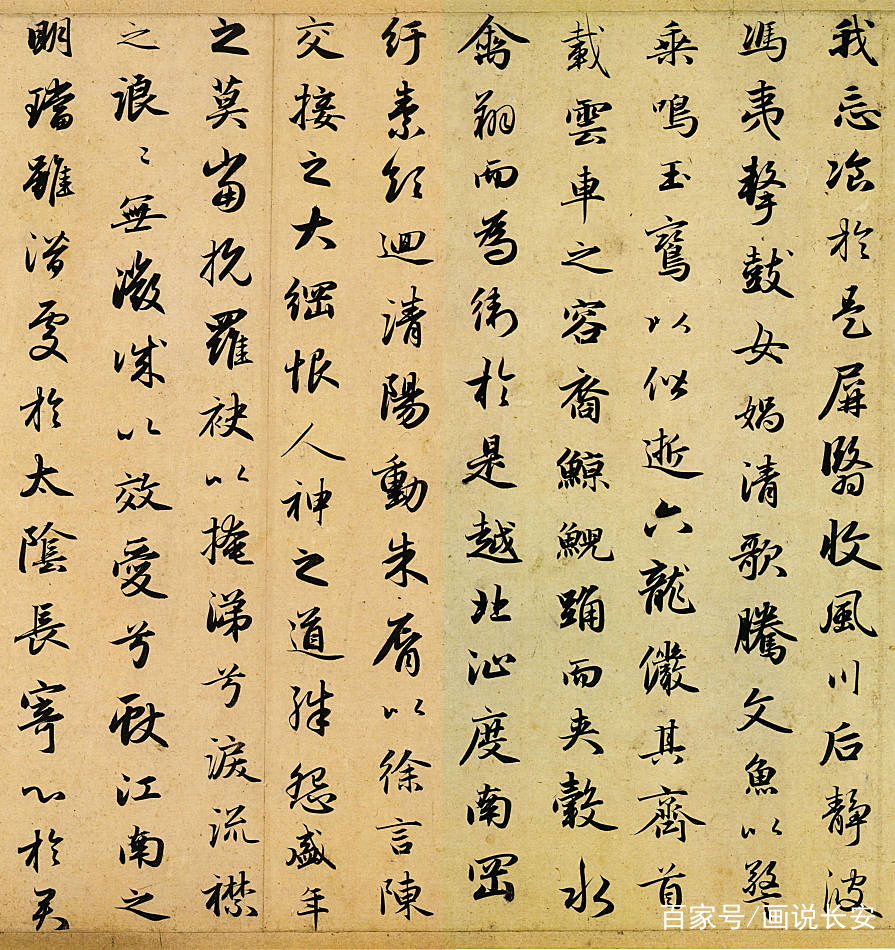 我忘飡於是屏翳收風川后静波
馮夷擊鼓女媧清歌騰文魚以警
乘鳴玉鸞以偕逝六龍儼其齊首
載雲車之容裔鯨鯢踊而夾轂水
禽翔而為衛於是越北沚度南岡
紆素領迴清陽動朱脣以徐言陳
交接之大綱恨人神之道殊怨盛年
之莫當抗羅袂以掩涕兮淚流襟
之浪〻無微誠以效愛兮獻江南之
明璫雖潛處於太陰長寄心於君
百家号/画说长安